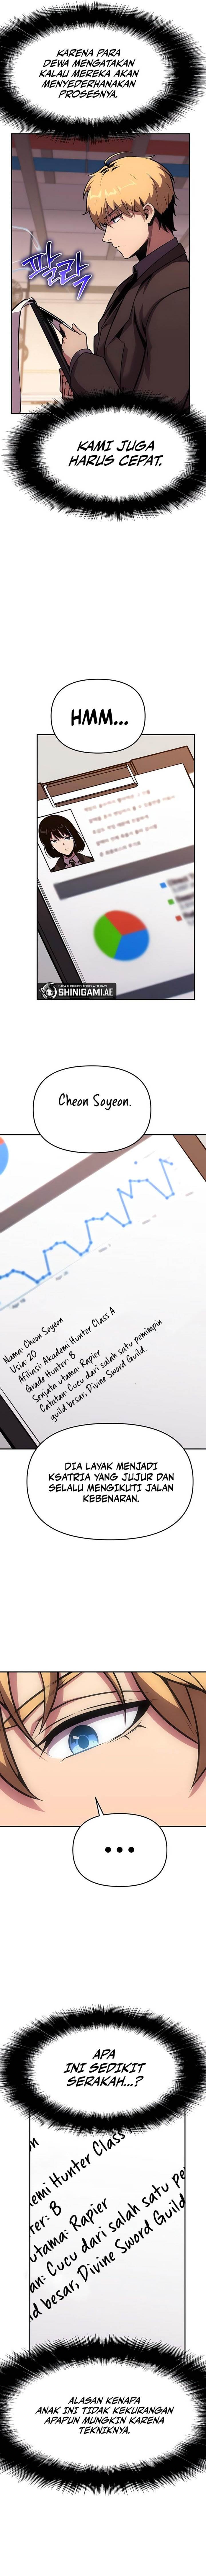 KARENA PARA
DEWA MENGATAKAN
KALAU MEREKA AKAN
MENYEDERHANAKAN
PROSESNYA.
팔락
KAMI JUGA
HARUS CEPAT.
HMM...
SHINIGAMI.AE
Cheon Soyeon.
Nama: Cheon Soyeon
Usia: 20
Afiliasi: Akademi Hunter Class A
Grade Hunter: B
Senjata utama: Rapier
Catatan: Cucu dari salah satu pemimpin
guild besar, Divine Sword Guild.
DIA LAYAK MENJADI
KSATRIA YANG JUJUR DAN
SELALU MENGIKUTI JALAN
KEBENARAN.
...
APA
INI SEDIKIT
SERAKAH...?
emi Hunter Class
er: B
utama: Rapier
an: Cucu dari salah satu pe
ld besar, Divine Sword Guild
ALASAN KENAPA
ANAK INI TIDAK KEKURANGAN
APAPUN MUNGKIN KARENA
TEKNIKNYA.